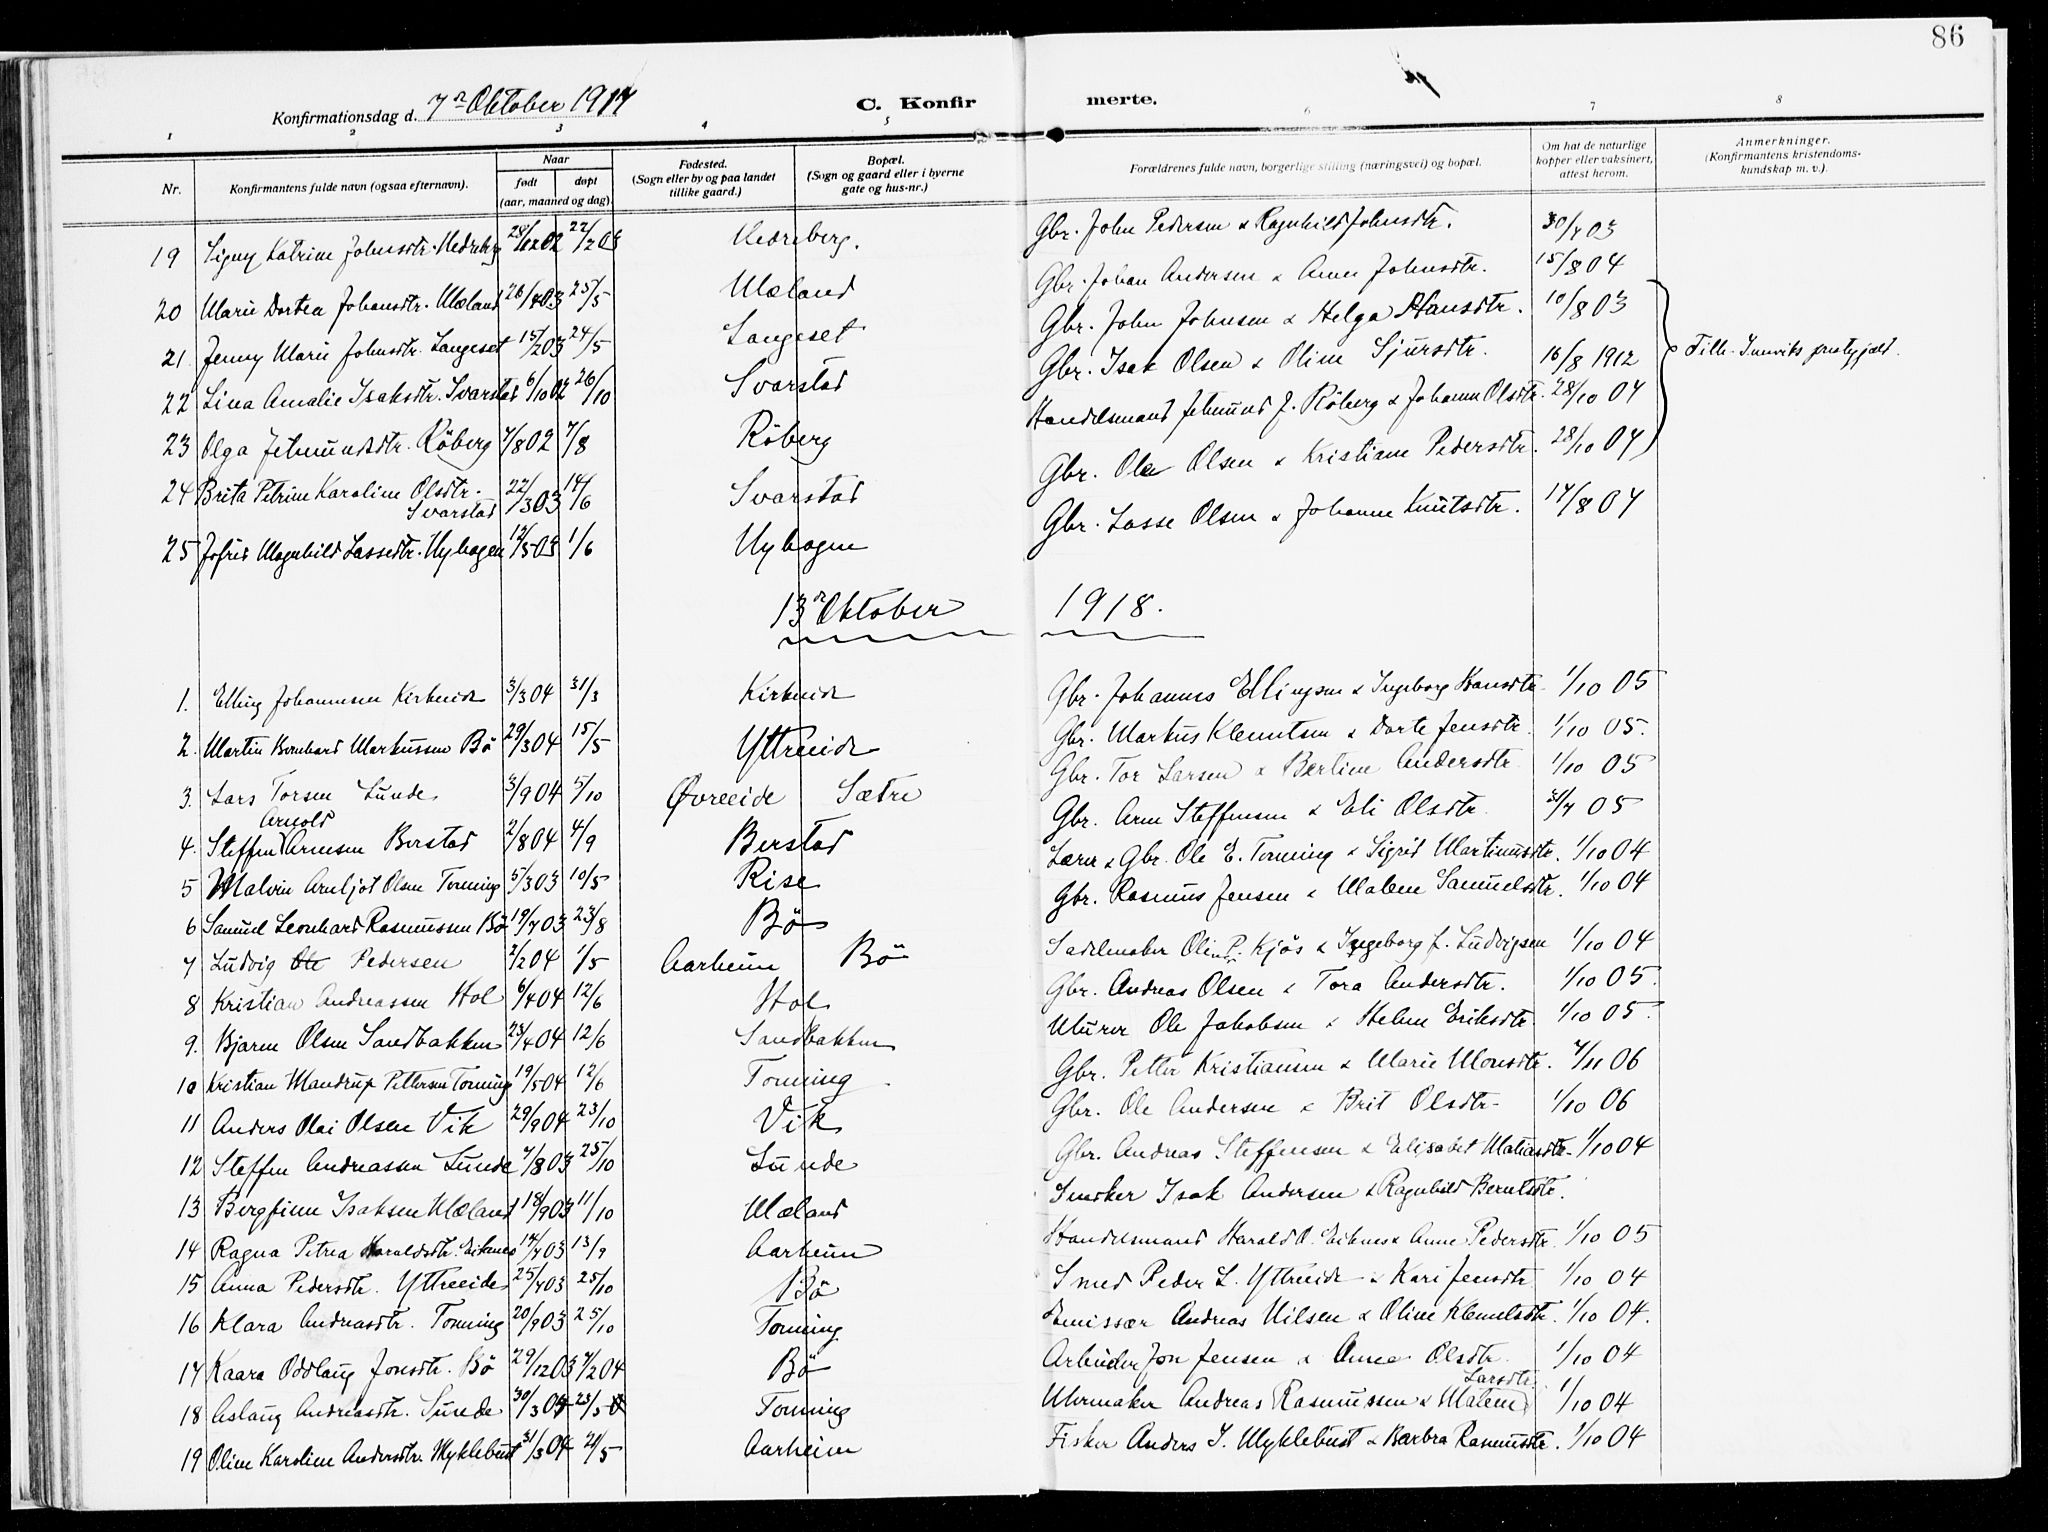 86
Konfirmationsdag d. 7de Oktober 1917
C. Konfirmerte.
1 2 3 4 5 6 7 8
Nr.
Konfirmantens fulde navn (ogsaa efternavn).
Naar
født døpt
(aar, maaned og dag).
Fødested.
(Sogn eller by og paa landet
tillike gaard.)
Bopæl.
(Sogn og gaard eller i byerne
gate og hus-nr.)
Forældrenes fulde navn, borgerlige stilling (næringsvei) og bopæl.
Om hat de naturlige
kopper eller vaksinert,
attest herom.
Anmerkninger.
(Konfirmantens kristendoms-
kundskap m. v.).
19 Signy Katrine Johnsdtr. Hedreberg 28/12 02 22/2 03 Hedreberg. Gbr. John Pedersen & Ragnhild Johnsdtr. 30/7 03
20 Marie Dortea Johansdtr. Mæland 26/4 03 25/5 Mæland Gbr. Johan Andersen & Anne Johnsdtr. 15/8 04
21 Jenny Marie Johnsdtr. Langeset 15/2 03 24/5 Langeset Gbr. John Johnsen & Helga Hansdtr. 10/8 03
22 Lina Amalie Isaksdtr. Svarstad 6/10 02 26/10 Svarstad Gbr. Isak Olsen & Oline Sjursdtr. 16/8 1912 Tilh. Innviks prestegjæld.
23 Olga Jetmundsdtr. Röberg 7/8 02 7/8 Röberg Handelsmand Jetmund J. Röberg & Johanne Olsdtr. 28/10 04
24 Brita Petrine Karoline Olsdtr. Svarstad 22/3 03 14/6 Svarstad Gbr. Ole Olsen & Kristiane Pedersdtr. 28/10 04
25 Jofrid Magnhild Lassesdtr. Nyhagen 12/5 03 1/6 Nyhagen Gbr. Lasse Olsen & Johanne Knutsdtr. 17/8 04
13de Oktober 1918.
1. Elling Johannesen Kirkeide 3/3 04 31/3 Kirkeide Gbr. Johannes Ellingsen & Ingeborg Hansdtr. 1/10 05
2. Martin Bernhard Markussen Bö 29/3 04 15/5 Yttreeide Gbr. Markus Klemetsen & Dorte Jensdtr. 1/10 05.
3. Lars Torsen Lunde 3/9 04 5/10 Øvreeide Sætre Gbr. Tor Larsen & Bertine Andersdtr. 1/10 05
4. Steffen Arnold Arnesen Berstad 2/8 04 4/9 Berstad Gbr. Arne Steffensen & Eli Olsdtr. 31/7 05
5 Malvin Arnljot Olsen Tonning 5/3 03 10/5 Rise Lærer & Gbr. Ole E. Tonning & Sigrid Martinusdtr. 1/10 04
6 Samuel Leonhard Rasmussen Bö 19/7 03 23/8 Bö Gbr. Rasmus Jensen & Malene Samuelsdtr. 1/10 04
7 Ludvig Ole Pedersen 2/2 04 1/5 Aarheim Bö Sadelmaker Oline P. Kjös & Ingeborg f. Ludvigsen 1/10 04
8 Kristian Andreassen Hol 6/4 04 12/6 Hol Gbr. Andreas Olsen & Tora Andersdtr. 1/10 05.
9. Bjarne Olsen Sandbakken 23/4 04 12/6 Sandbakken Murer Ole Jakobsen & Helene Eriksdtr. 1/10 05.
10 Kristian Mandrup Pettersen Tonning 19/5 04 12/6 Tonning Gbr. Petter Kristiansen & Marie Monsdtr. 7/11 06
11 Anders Olai Olsen Vik 29/9 04 23/10 Vik Gbr. Ole Andersen & Brit Olsdtr. 1/10 06
12 Steffen Andreassen Lunde 7/8 03 25/10 Lunde Gbr. Andreas Steffensen & Elisabet Matiasdtr. 1/10 04
13 Bergfinn Isaksen Mæland 18/9 03 11/10 Mæland Snedker Isak Andersen & Ragnhild Berntsdtr.
14 Ragna Petrea Haraldsdtr. Eiknes 14/7 03 13/9 Aarheim Handelsmand Harald O. Eiknes & Anne Pedersdtr. 1/10 05
15 Anna Pedersdtr. Yttreeide 25/7 03 25/10 Bö Smed Peder L. Yttreeide & Kari Jensdtr 1/10 04
16 Klara Andreasdtr. Tonning 20/9 03 25/10 Tonning Emissær Andreas Nilsen & Oline Klemetsdtr. 1/10 04.
17 Kaara Oddlaug Jonsdtr. Bö 29/12 03 7/2 04 Bö Arbeider Jon Jensen & Anne Olsdtr. 1/10 04
18 Aslaug Andreasdtr. Sunde 30/3 04 23/5 Tonning Urmaker Andreas Rasmussen & Malene Larsdtr. 1/10 04
19 Oline Karoline Andersdtr. Myklebust 31/3 04 21/5 Aarheim Fisker Anders J. Myklebust & Barbra Rasmusdtr. 1/10 04